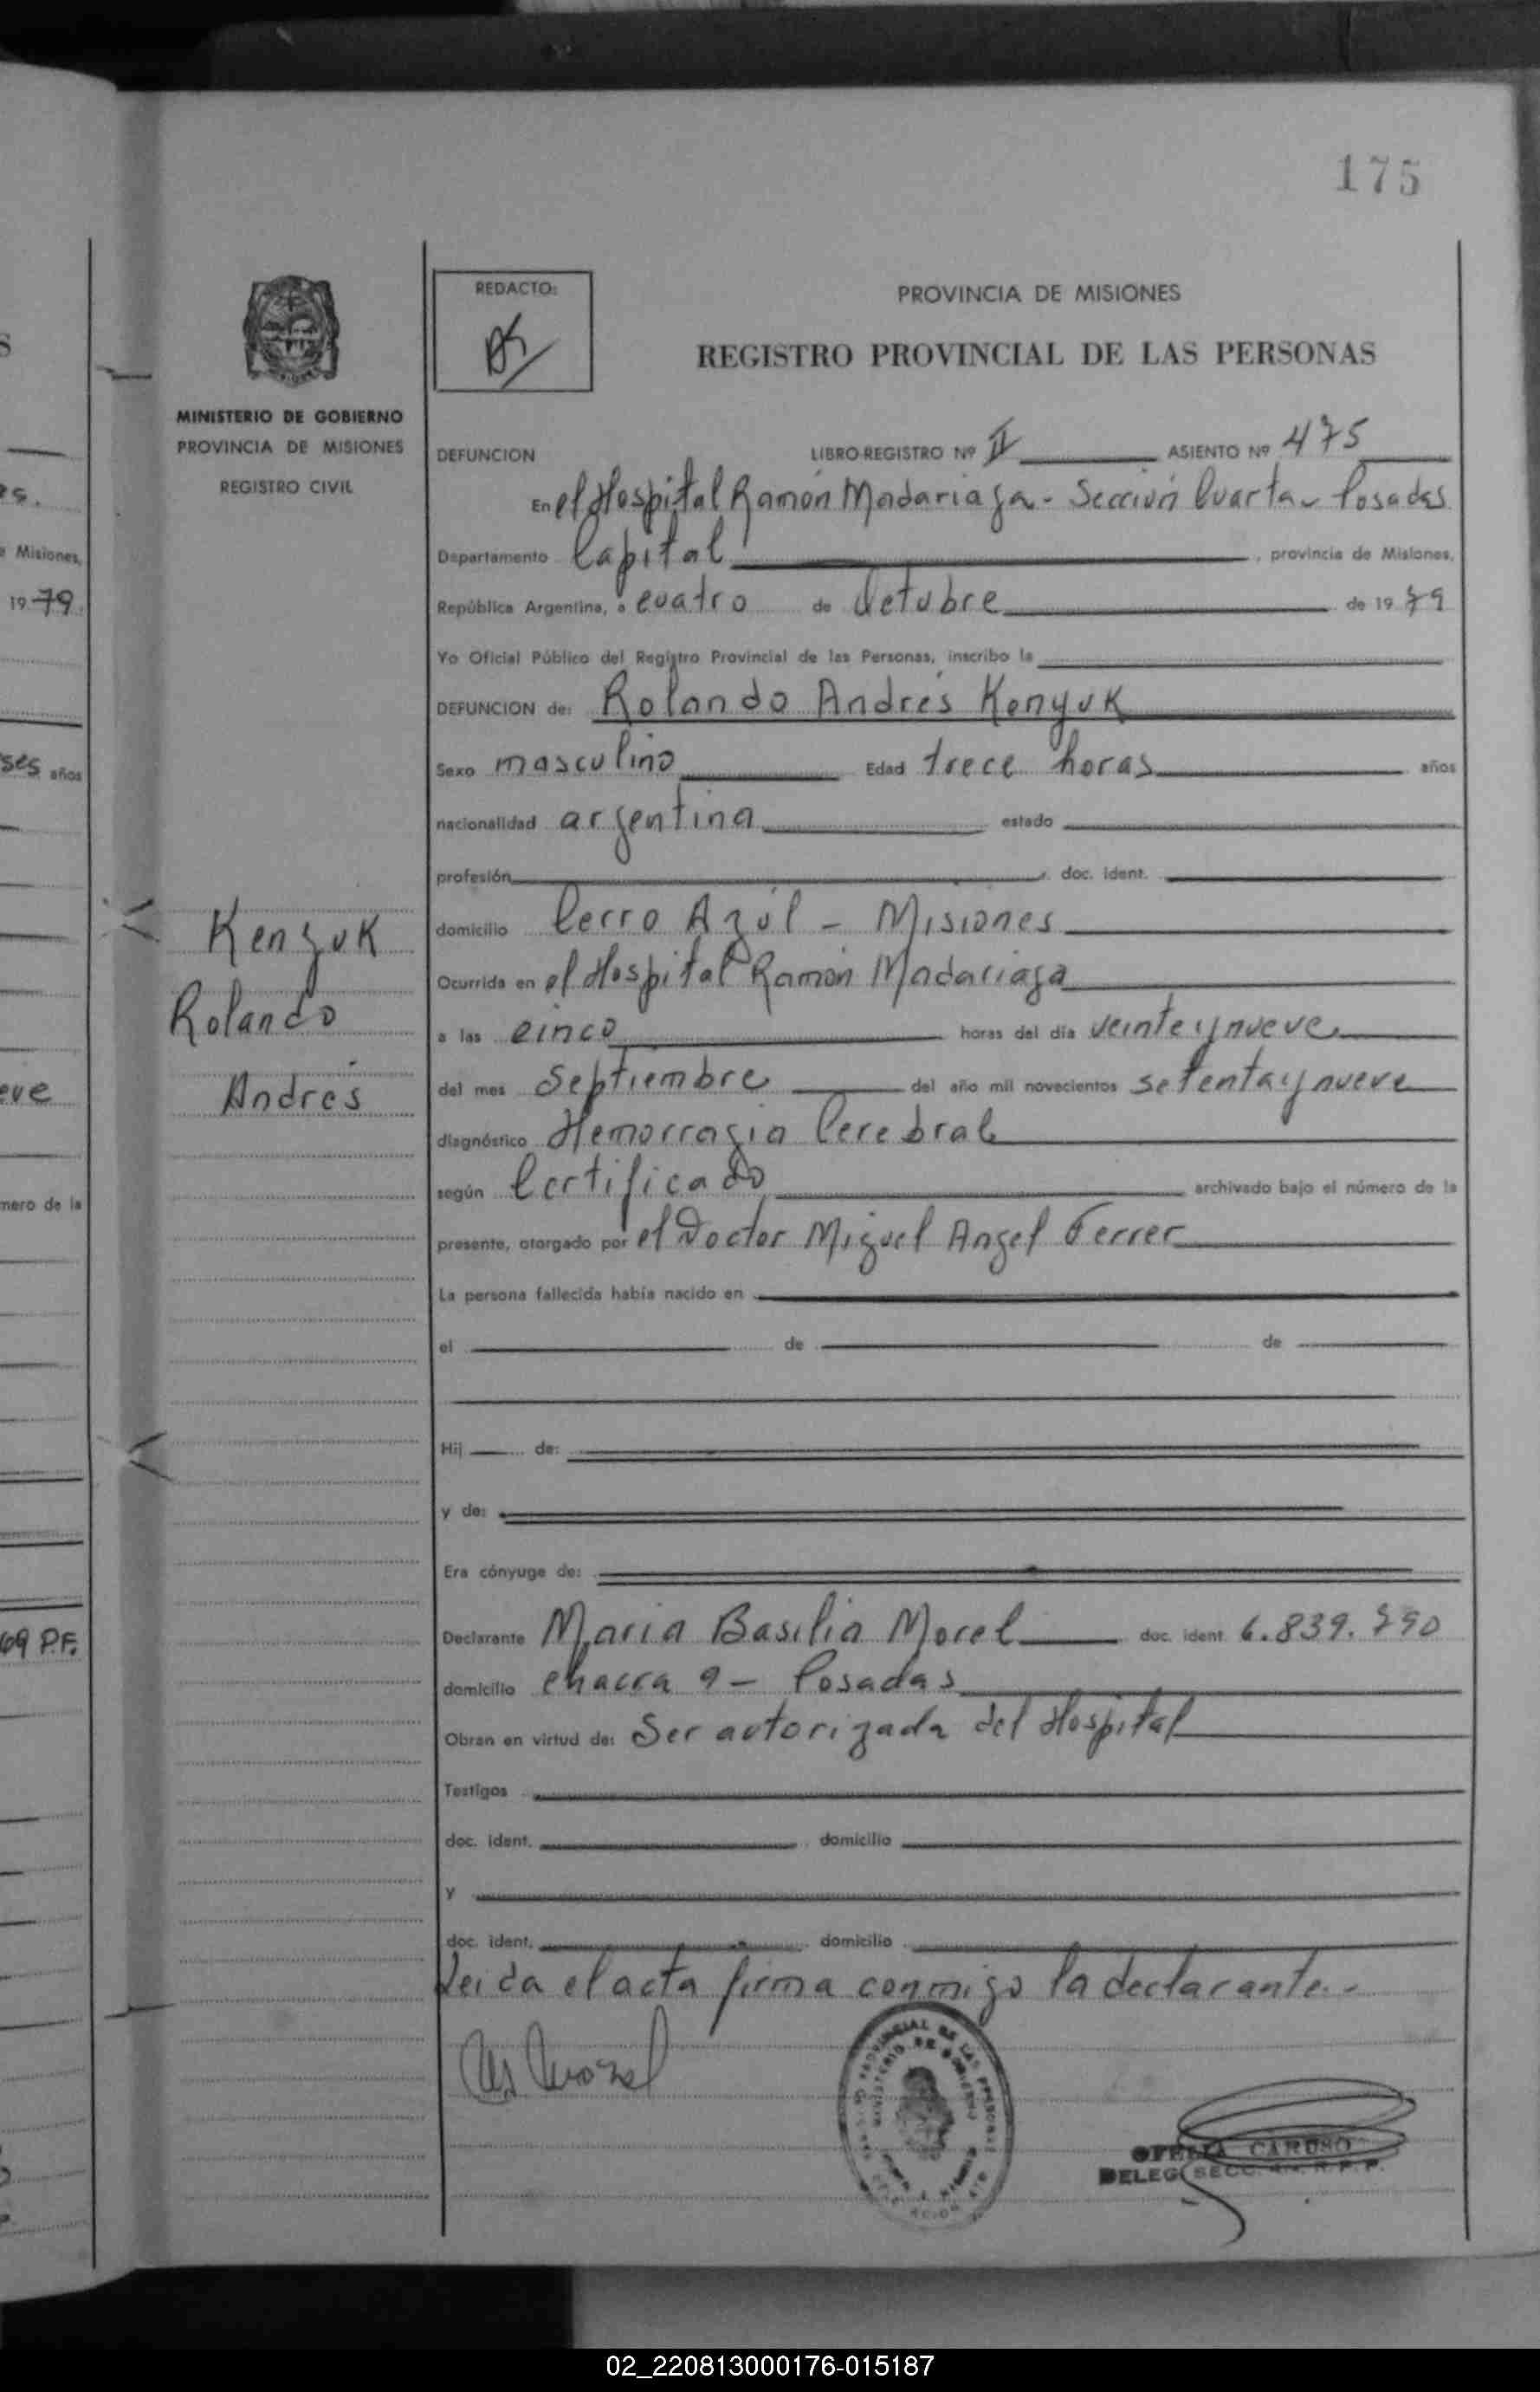 175
REDACTO:
PROVINCIA DE MISIONES
REGISTRO PROVINCIAL DE LAS PERSONAS
MINISTERIO DE GOBIERNO
PROVINCIA DE MISIONES
REGISTRO CIVIL
DEFUNCION LIBRO-REGISTRO Nº II ASIENTO Nº 475
En el Hospital Ramón Madariaga - Sección Cuarta - Posadas
Departamento Capital, provincia de Misiones,
República Argentina, a cuatro de Octubre de 1979
Yo Oficial Público del Registro Provincial de las Personas, inscribo la
DEFUNCION de: Rolando Andrés Kenyuk
Sexo masculino Edad trece horas años
nacionalidad argentina estado
profesión doc. ident.
Kenyuk
Rolando
Andrés
domicilio Cerro Azúl - Misiones
Ocurrida en el Hospital Ramón Madariaga
a las cinco horas del día veinte y nueve
del mes Septiembre del año mil novecientos setenta y nueve
diagnóstico Hemorragia Cerebral
según Certificado archivado bajo el número de la
presente, otorgado por el Doctor Miguel Angel Ferrer
La persona fallecida había nacido en
el de de
Hij de:
y de:
Era cónyuge de:
Declarante Maria Basilia Morel doc. ident. 6.839.790
domicilio chacra 9 - Posadas
Obran en virtud de: Ser autorizada del Hospital
Testigos
doc. ident. domicilio
y
doc. ident. domicilio
Leida el acta firma conmigo la declarante.-
OFELIA CARUSO
DELEG. SECC. 4ta. R. P. P.
s
es.
e Misiones,
1979.
ses años
eve
mero de la
69 P.F.
02_220813000176-015187